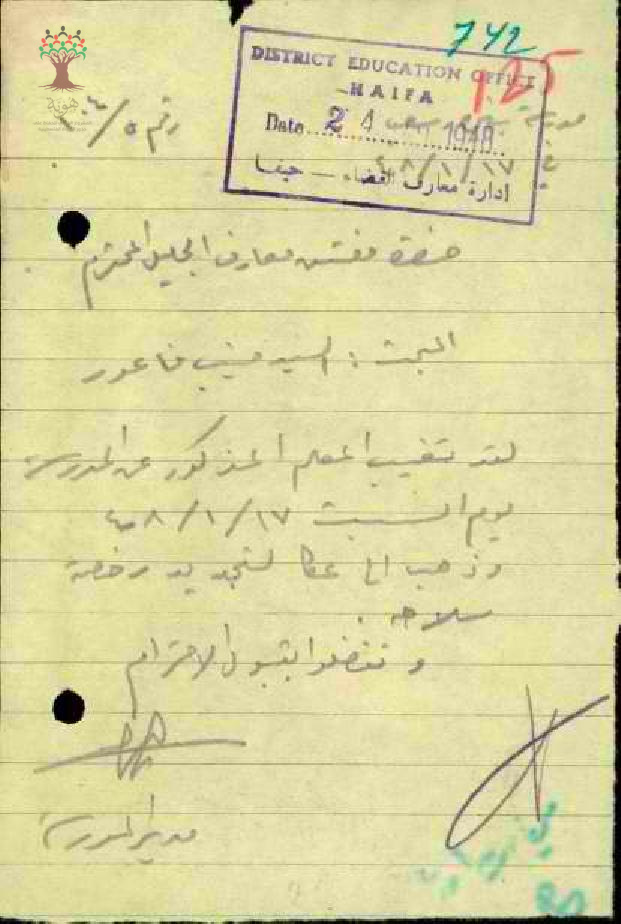 742
125
DISTRICT EDUCATION OFFICE
HAIFA
Date 24 1948
ادارة معارف القضاء — حيفا
هوية
رقم ٥/
في ٤٨/١/١٧
حضرة مفتش معارف الجليل المحترم
المبحث : السيد منيب فاعور
لقد تغيب المعلم المذكور عن المدرسة
يوم السبت ٤٨/١/١٧
وذهب الى عكا لتجديد رخصة
سلاحه .
وتفضلوا بقبول الاحترام
مدير المدرسة